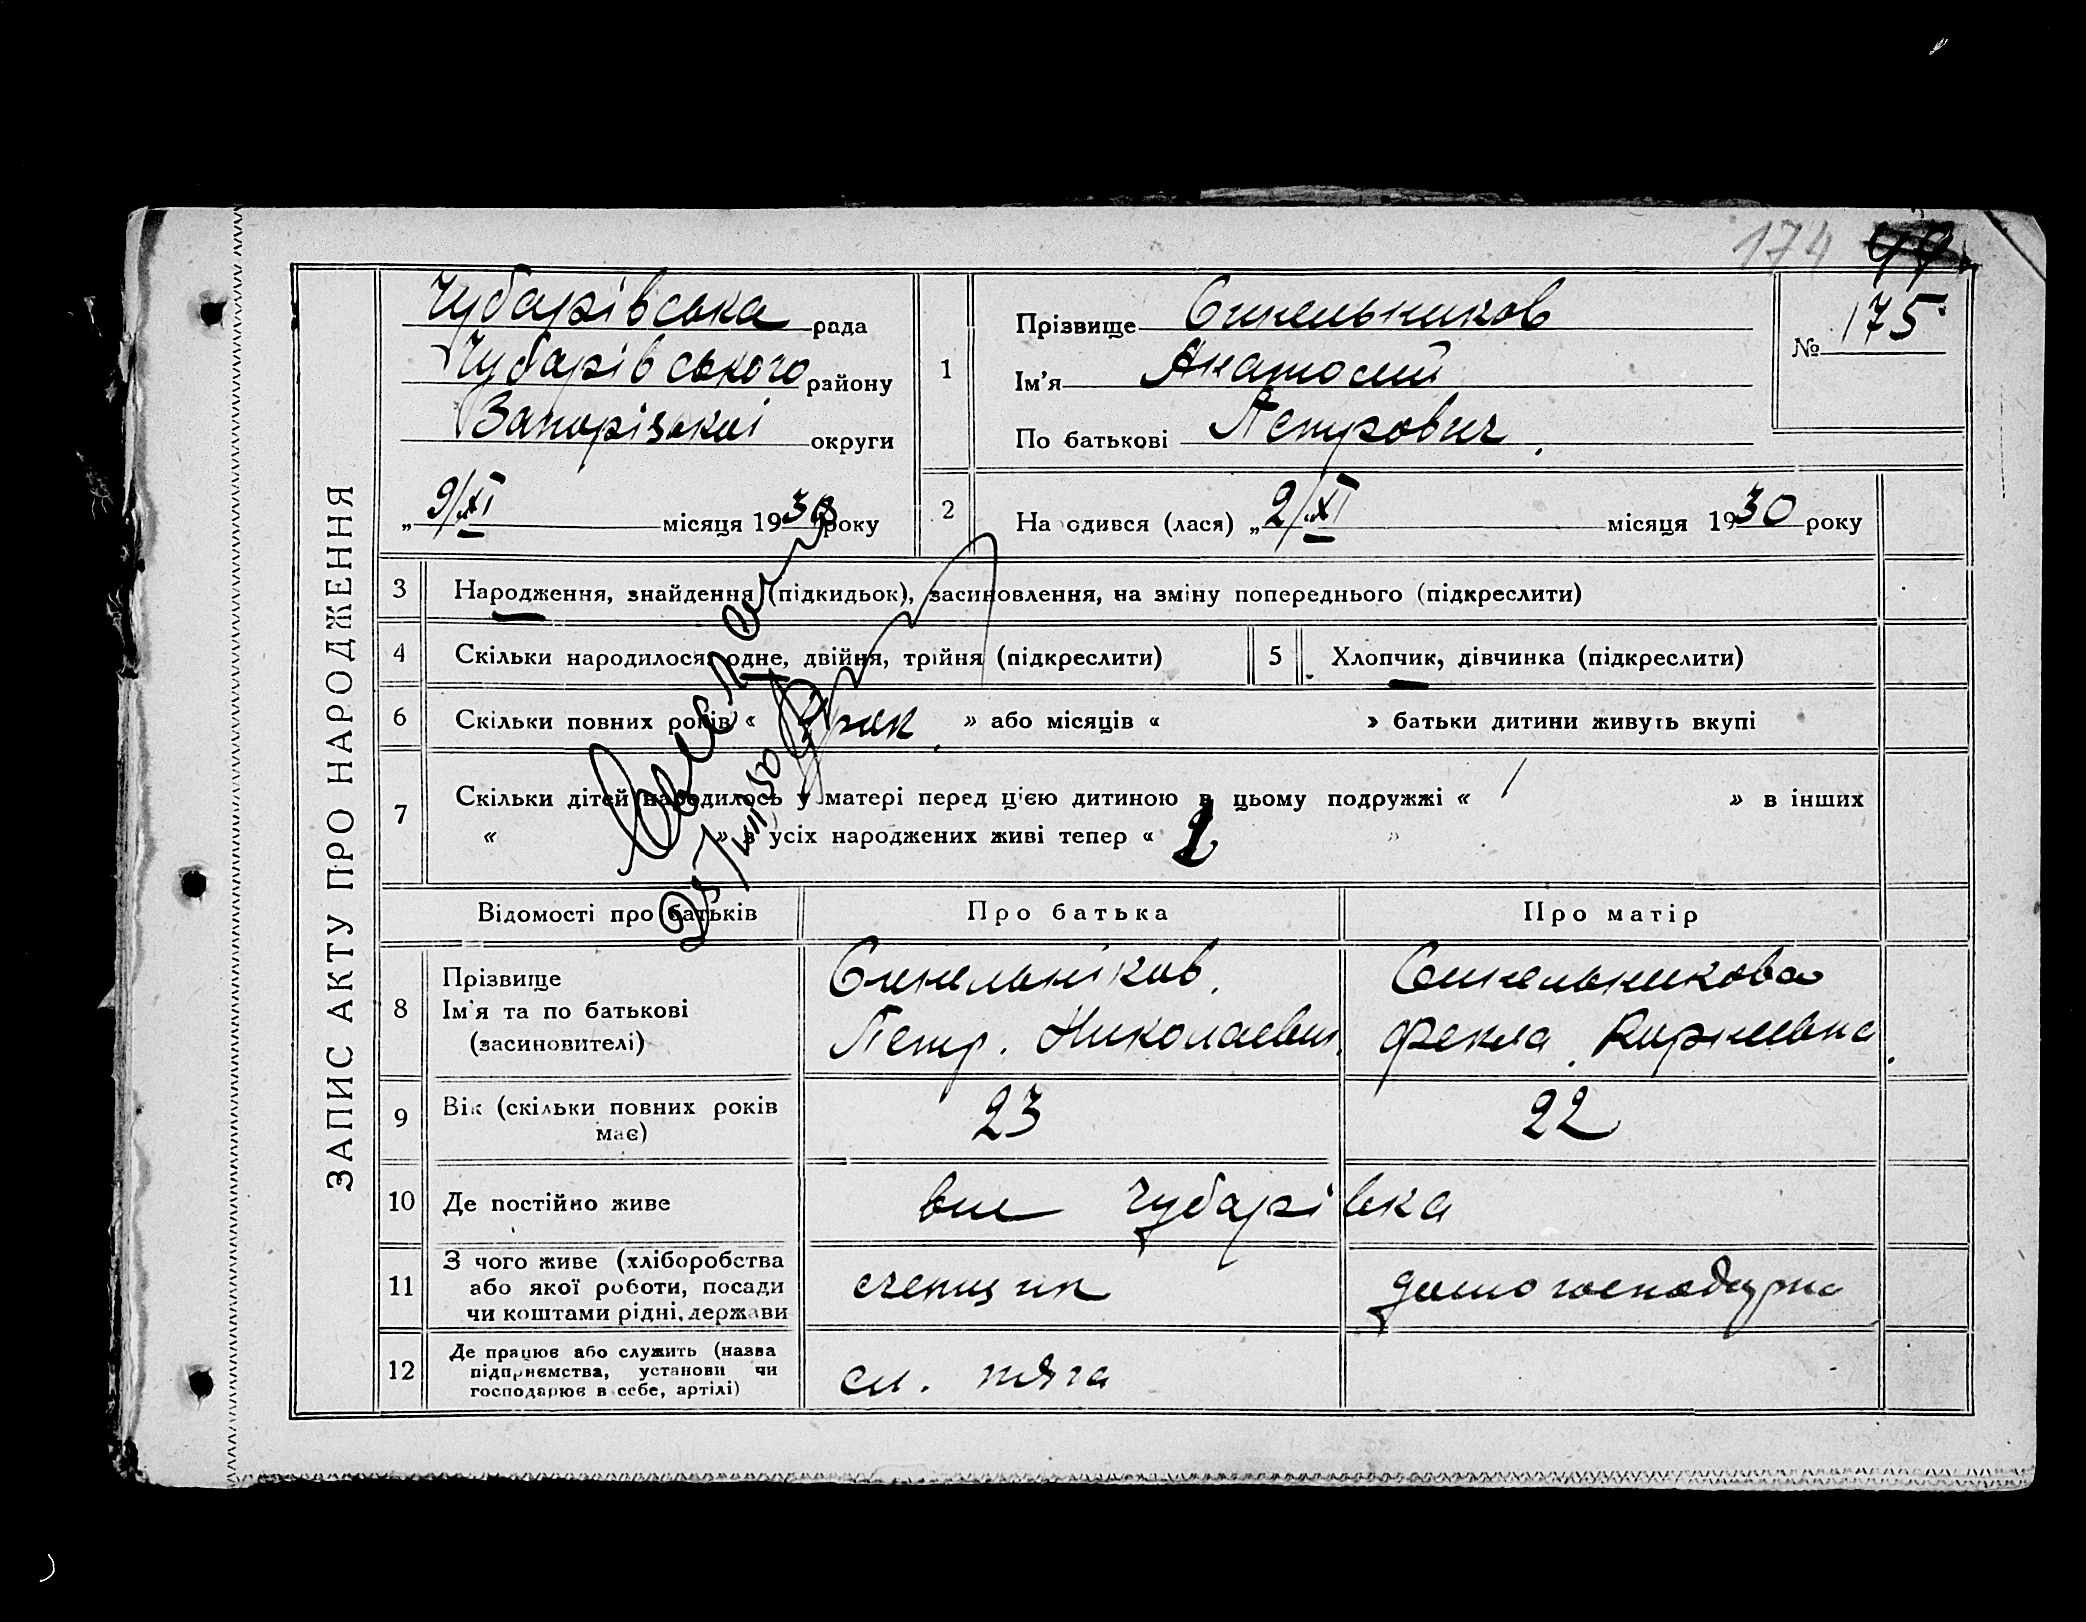 174
ЗАПИС АКТУ ПРО НАРОДЖЕННЯ
Чубарівська рада
Чубарівського району
Запорізької округи
„ 9/XI місяця 1930 року
1
Прізвище Синельников
Ім'я Анатолій
По батькові Петрович
№ 175
2
Народився (лася) „ 2/XI місяця 1930 року
3 Народження, знайдення (підкидьок), засиновлення, на зміну попереднього (підкреслити)
4 Скільки народилося: одне, двійня, трійня (підкреслити)
5 Хлопчик, дівчинка (підкреслити)
6 Скільки повних років « » або місяців « » батьки дитини живуть вкупі
7 Скільки дітей народилось у матері перед цією дитиною в цьому подружжі « 1 » в інших
« » з усіх народжених живі тепер « 2 »
Відомості про батьків Про батька Про матір
8 Прізвище
Ім'я та по батькові
(засиновителі)
Синельніков.
Петр. Николаевич.
Синельникова
Фекла
9 Вік (скільки повних років
має)
23
22
10 Де постійно живе
Чубарівка
11 З чого живе (хліборобства
або якої роботи, посади
чи коштами рідні, держави
домогосподурка
12 Де працює або служить (назва
підприємства, установи чи
господарює в себе, артілі)
сл. тяга